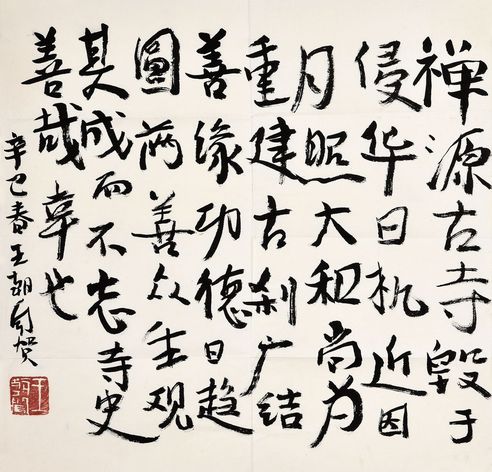 禅源古寺毁于
侵华日机近因
月照大和尚为
重建古刹广结
善缘功德日趋
圓满善众生观
其成而不忘寺史
善哉幸也
辛巳春王朝